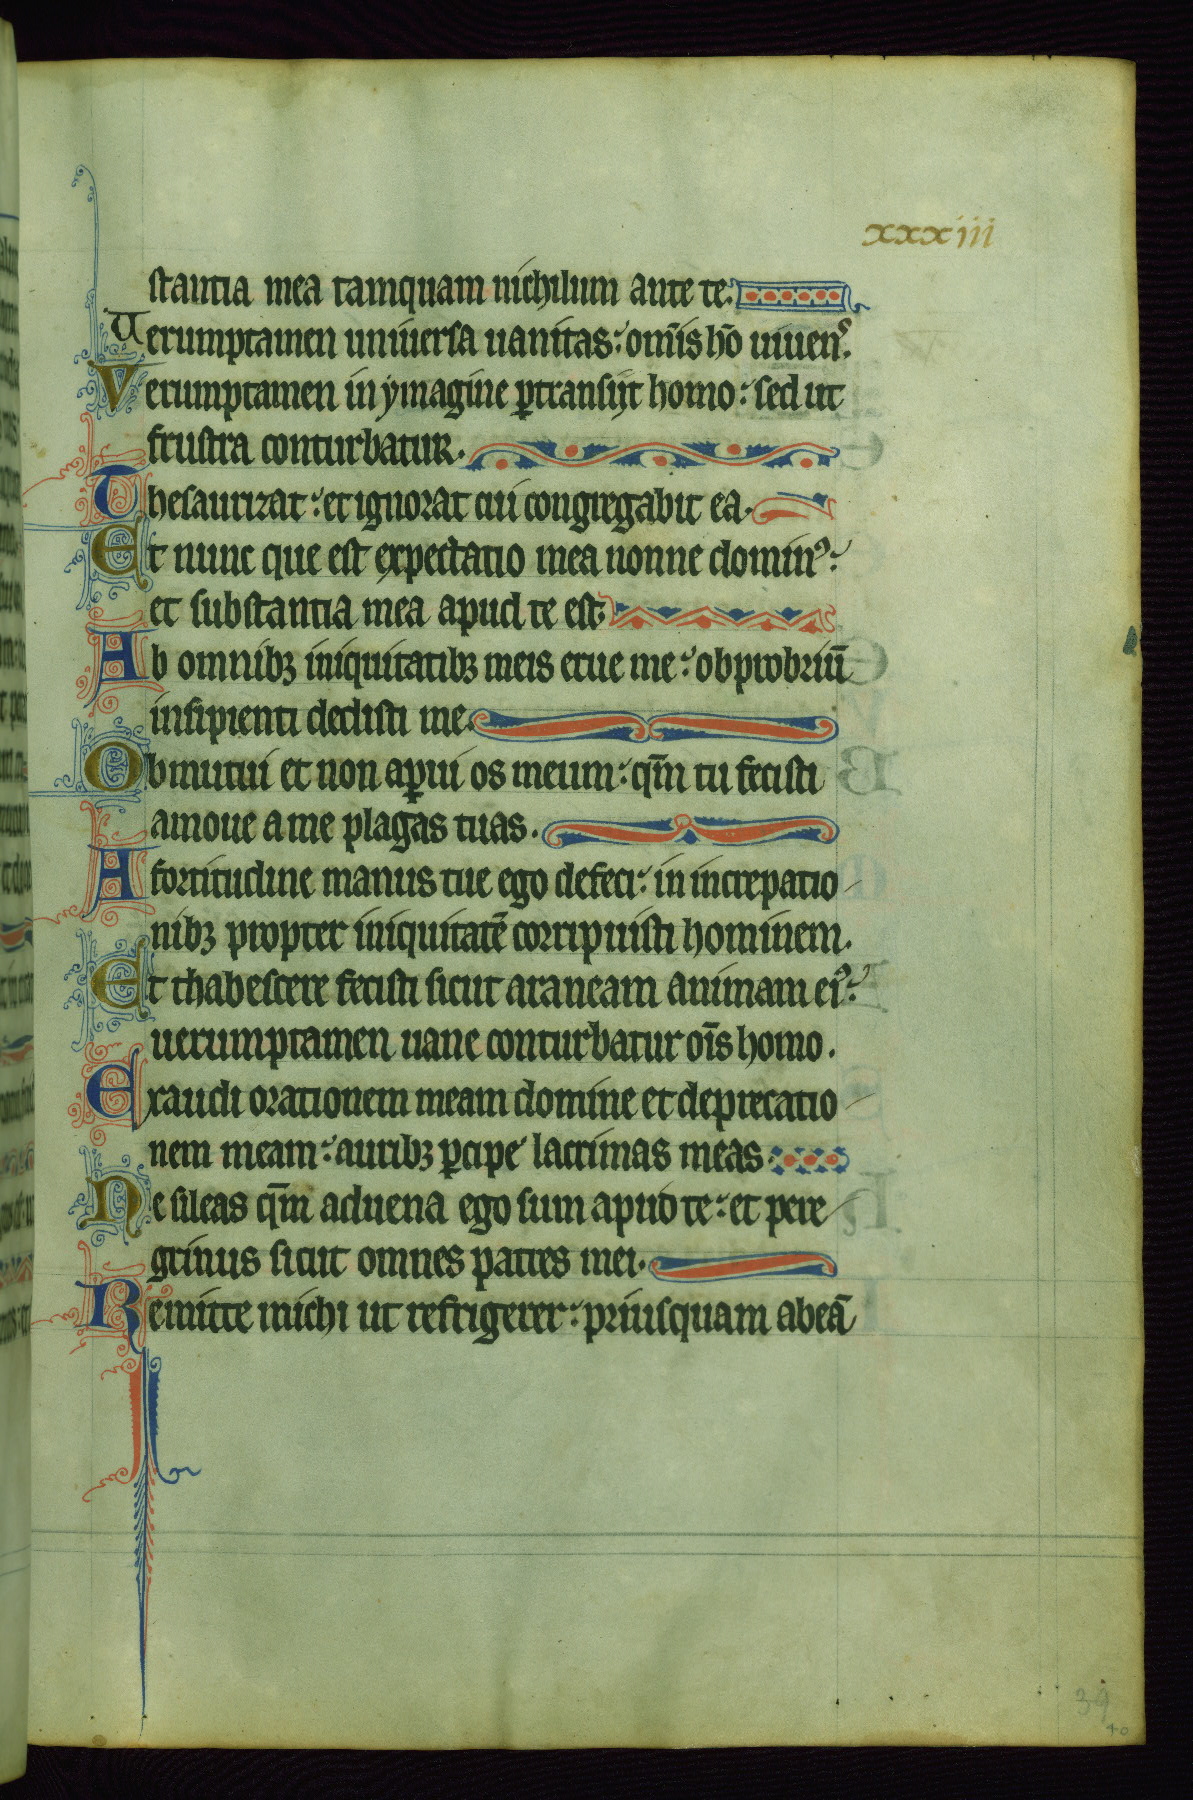 xxxiii
stantia mea tamquam nichilum ante te:
Uerumptamen uniuersa uanitas: om̄is hō uiuenꝰ.
Verumptamen in ymagine ꝑtransijt homo: sed ut
frustra conturbatur.
Thesaurizat: et ignorat cui congregabit ea.
Et nunc que est expectatio mea nonne dominꝰ:
et substantia mea apud te est
Ab omnibꝫ iniquitatibꝫ meis erue me: obprobriū
insipienti dedisti me.
Obmutui et non aꝑui os meum: qm̄ tu fecisti
amoue a me plagas tuas.
A fortitudine manus tue ego defeci: in increpatio
nibꝫ propter iniquitatē corripuisti hominem.
Et thabescere fecisti sicut araneam animam eiꝰ:
uerumptamen uane conturbatur oīs homo.
Exaudi orationem meam domine et deprecatio
nem meam: auribꝫ ꝑcipe lacrimas meas.
Ne sileas qm̄ aduena ego sum apud te: et pere
grinus sicut omnes patres mei.
Remitte michi ut refrigerer: priusquam abeā
39
40